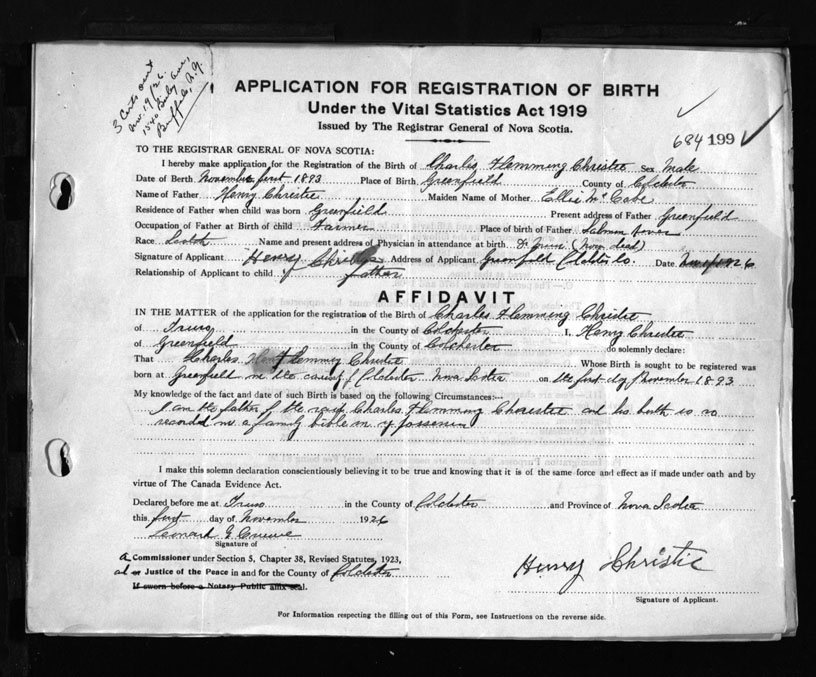 3 Certs out
Nov 19/26
1540 Bailey Ave,
Buffalo, N.Y.
APPLICATION FOR REGISTRATION OF BIRTH
Under the Vital Statistics Act 1919
Issued by The Registrar General of Nova Scotia.
684 199
TO THE REGISTRAR GENERAL OF NOVA SCOTIA:
I hereby make application for the Registration of the Birth of Charles Flemming Christie Sex Male
Date of Birth November first 1893 Place of Birth Greenfield County of Colchester
Name of Father Henry Christie Maiden Name of Mother Ellie McCabe
Residence of Father when child was born Greenfield Present address of Father Greenfield
Occupation of Father at Birth of child Farmer Place of birth of Father Salmon River
Race Scotch Name and present address of Physician in attendance at birth Dr (Now dead)
Signature of Applicant Henry Christie Address of Applicant Greenfield Colchester Co. Date Nov 1/1926
Relationship of Applicant to child father
AFFIDAVIT
IN THE MATTER of the application for the registration of the Birth of Charles Flemming Christie
of Truro in the County of Colchester I, Henry Christie
of Greenfield in the County of Colchester do solemnly declare:
That Charles Flemming Christie Whose Birth is sought to be registered was
born at Greenfield in the county of Colchester Nova Scotia on the first day of November 1893
My knowledge of the fact and date of such Birth is based on the following Circumstances:--
I am the father of the said Charles Flemming Christie and his birth is so
recorded in a family bible in my possession
I make this solemn declaration conscientiously believing it to be true and knowing that it is of the same force and effect as if made under oath and by
virtue of The Canada Evidence Act.
Declared before me at Truro in the County of Colchester and Province of Nova Scotia
this first day of November 1926
Signature of
A Commissioner under Section 5, Chapter 38, Revised Statutes, 1923,
or Justice of the Peace in and for the County of Colchester
If sworn before a Notary Public affix seal.
Henry Christie
Signature of Applicant.
For Information respecting the filling out of this Form, see Instructions on the reverse side.